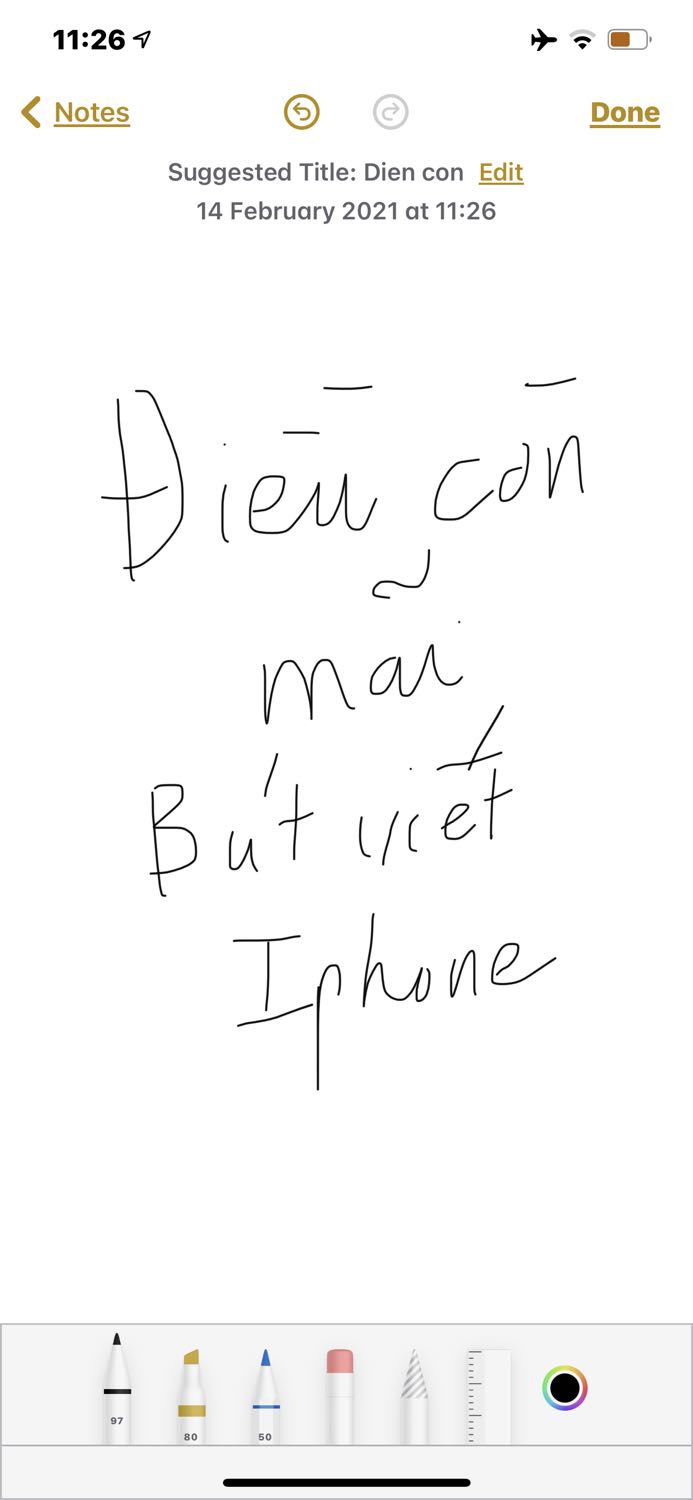 11:26
Notes Done
Suggested Title: Dien con Edit
14 February 2021 at 11:26
Điều còn
mãi
Bút viết
Iphone
97 80 50